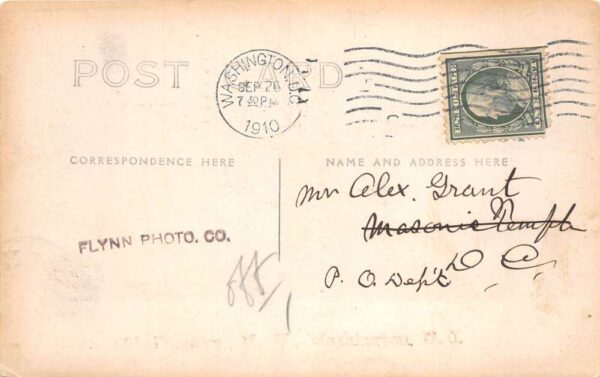 POST CARD
WASHINGTON, D.C.
SEP 26
7 30 PM
1910
U.S. POSTAGE
ONE CENT
CORRESPONDENCE HERE
NAME AND ADDRESS HERE
Mr Alex. Grant
Masonic Temple
D C
P. O. Dep't
FLYNN PHOTO. CO.
Washington, D.C.